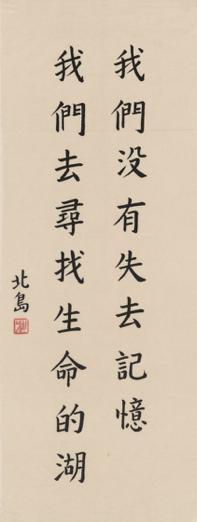 我們没有失去記憶
我們去尋找生命的湖
北島